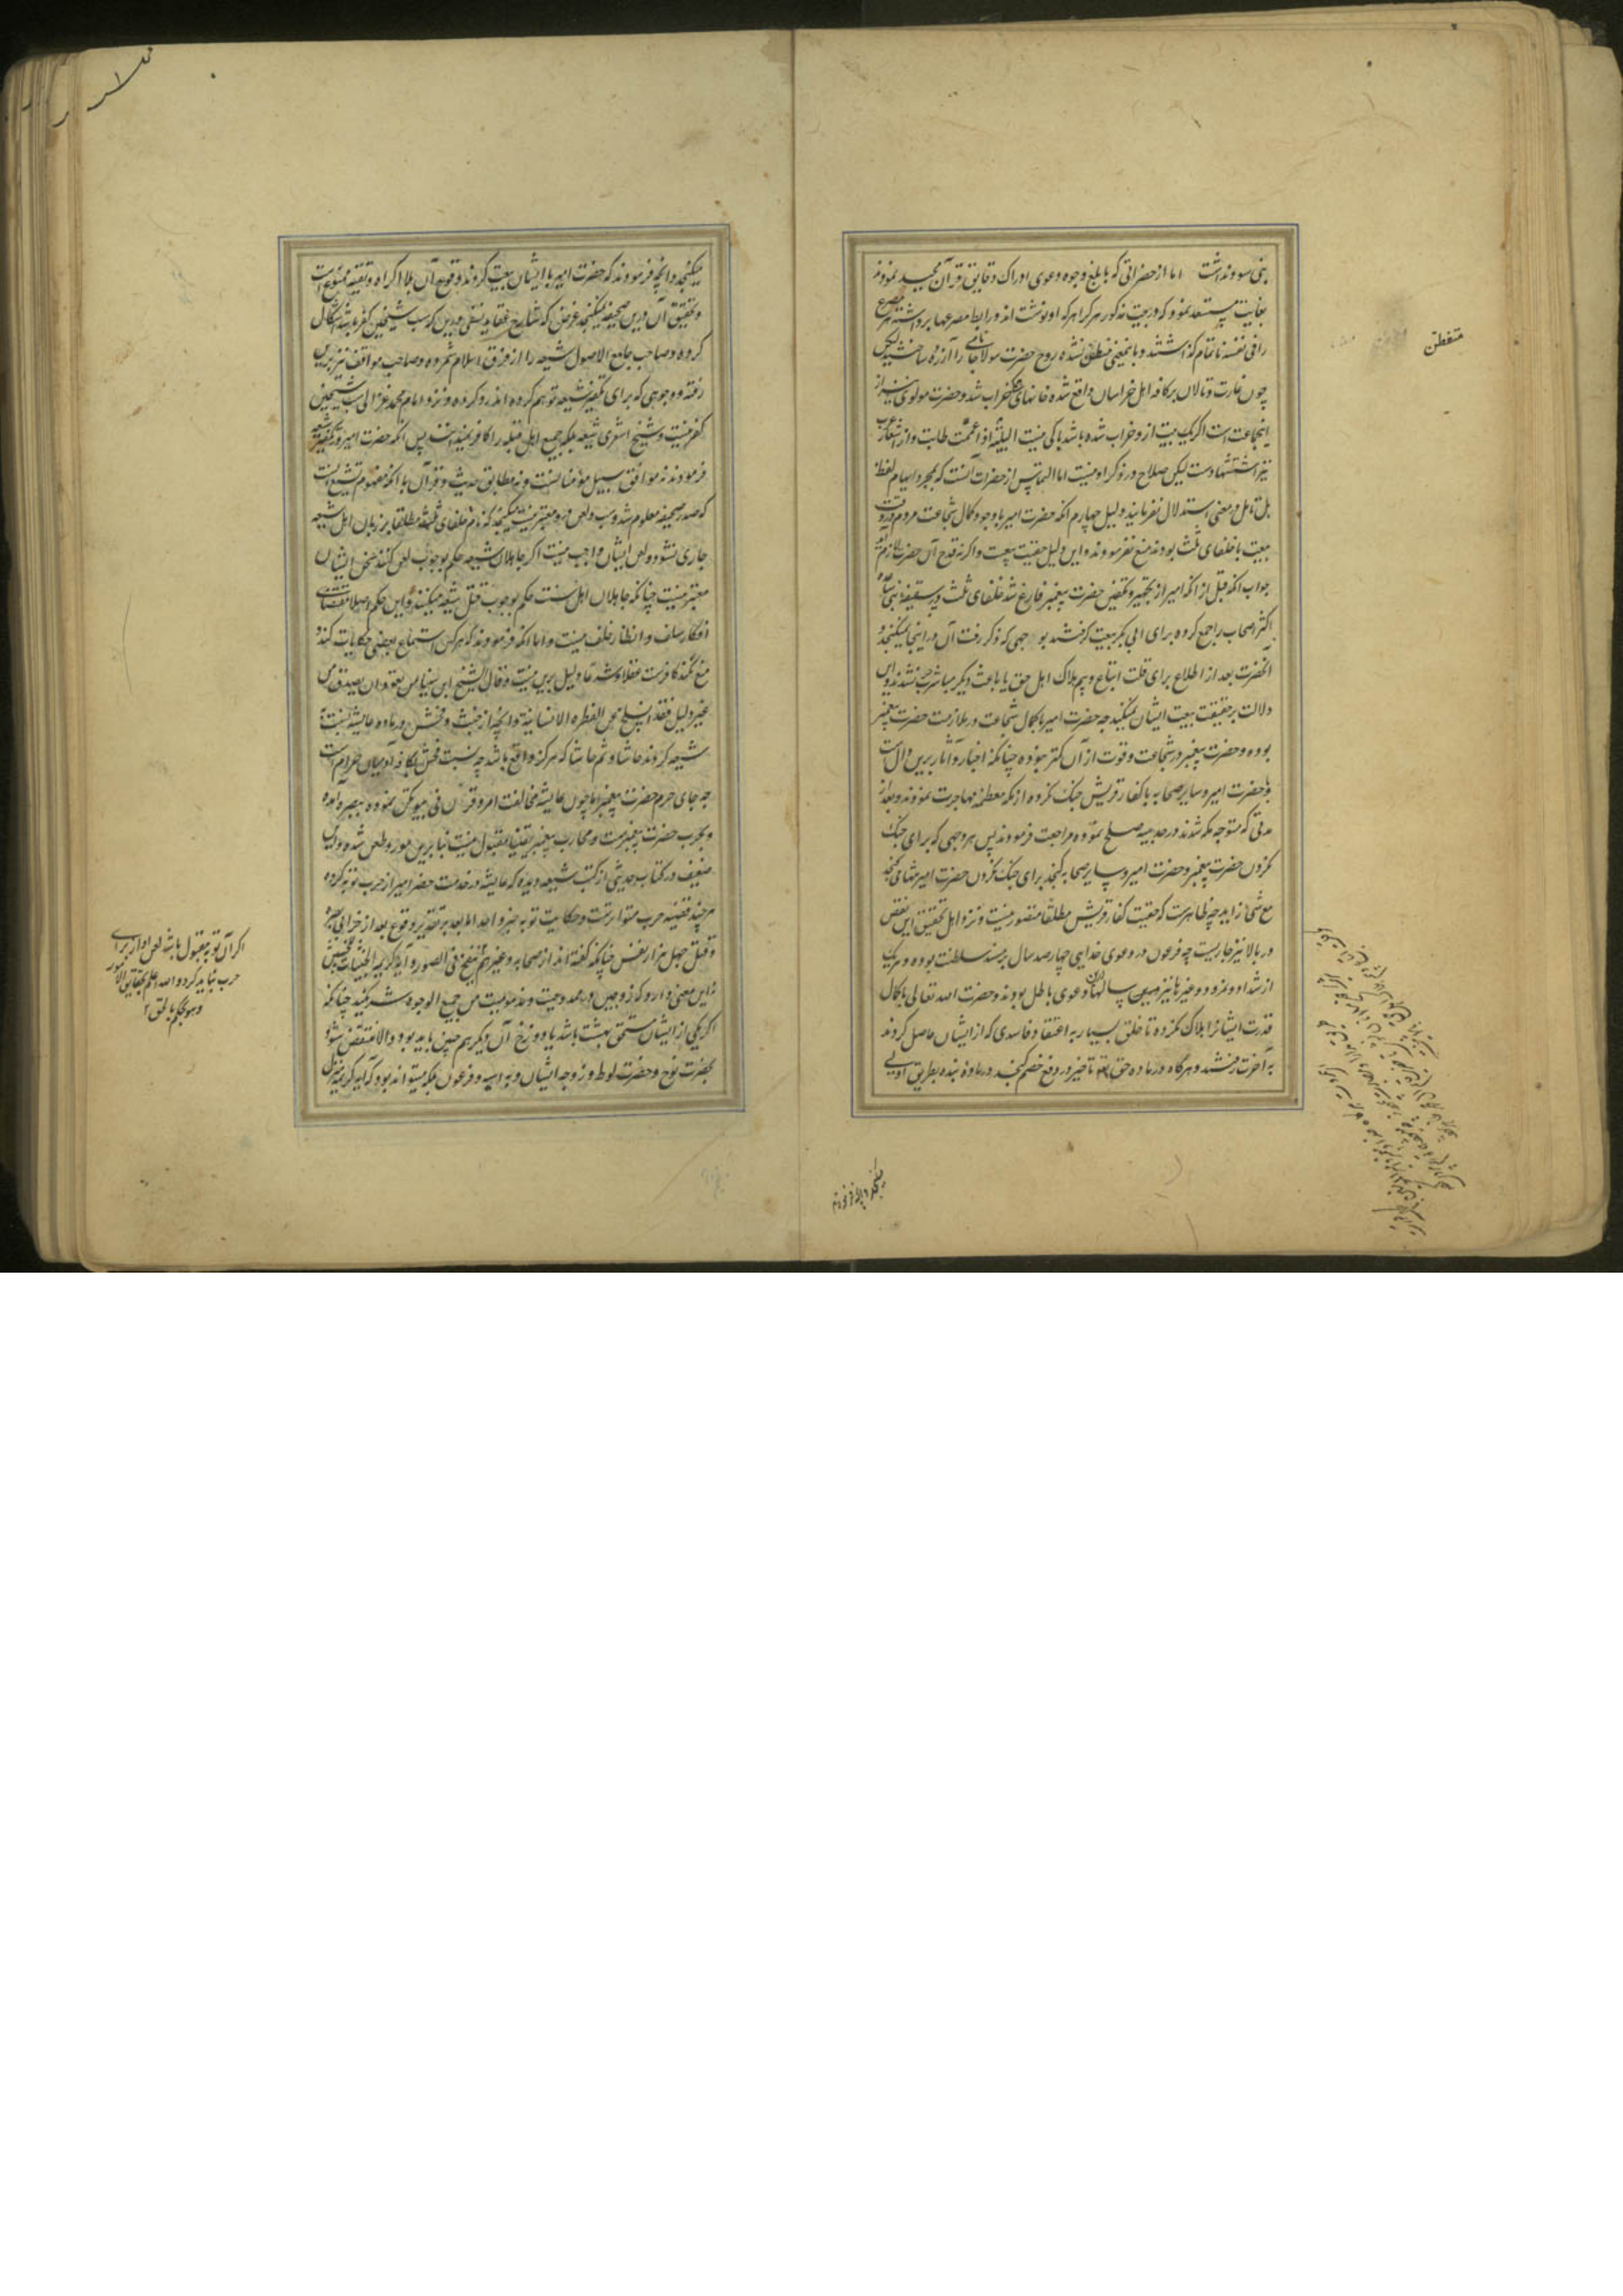 بنی سود نداشت اما از حضراتی که بابلغ وجوه دعوی ادراک دقایق قرآن مجید نمودند
بغایت مستبعد نمود که در بیت مذکور هر کرا هر که او نوشت اند و رابط مصرعها برداشته هر مصرع
را فی نفسه ناتمام گذاشتند و باینمعنی متفطن نشده روح حضرت مولانا جامی را آزرده ساختند لیکن
چون غارت و تالان بر کافه اهل خراسان واقع شده خانهای همه خراب شد و حضرت مولوی نیز از
اینجماعت است اگر یک بیت ازو خراب شده باشد باکی نیست البلیة اذا عمت طابت و از اشعار عرب
نیز استشهاد ست لیکن صلاح در ذکر او نیست اما التماس از حضرات آنست که بمجرد ایهام لفظ
بی تامل در معنی استدلال نفرمایند دلیل چهارم آنکه حضرت امیر با وجود کمال شجاعت مردم در وقت
بیعت با خلفای ثلث بودند منع نفرمودند و این دلیل حقیت بیعت و اگرنه قدح آن حضرت لازم آید
جواب آنکه قبل از آنکه امیر از تجهیز و تکفین حضرت پیغمبر فارغ شد خلفای ثلث در سقیفه بنی ساعده
اکثر اصحاب را جمع کرده برای ابی بکر بیعت گرفتند بو جهی که ذکر رفت آن در اینجا نمیگنجد و
آنحضرت بعد از اطلاع برای قلت اتباع و بیم هلاک اهل حق یا باعث دیگر مباشر حرب نشدند و این
دلالت بر حقیقت بیعت ایشان نمیکند چه حضرت امیر با کمال شجاعت در ملازمت حضرت پیغمبر
بوده و حضرت پیغمبر در شجاعت و قوت از آن کمتر نبوده چنانکه اخبار و آثار برین دال است
و با حضرت امیر و سایر صحابه با کفار قریش جنگ نکرده از مکه معظمه مهاجرت نمودند و بعد از
مدتی که متوجه مکه شدند در حدیبیه صلح نموده مراجعت فرمودند پس هر وجهی که برای جنگ
نکردن حضرت پیغمبر و حضرت امیر و سایر صحابه گنجد برای جنگ نکردن حضرت امیر تنها می گنجد
مع شئ زاید چه ظاهرست که حقیت کفار قریش مطلقا متصور نیست و نزد اهل تحقیق این نقض
در بالا نیز جاریست چه فرعون در دعوی خدایی چهارصد سال بر مسند سلطنت بوده و هر یک
از شداد و نمرود و غیر ها نیز همین سالها در آن دعوی باطل بودند و حضرت الله تعالی با کمال
قدرت ایشانرا هلاک نکرده تا خلق بسیار به اعتقاد فاسدی که از ایشان حاصل کردند
به آخرت رفتند و هر گاه در ماده حق تعالی تاخیر در دفع خصم گنجد در ماده بنده بطریق اولی
متفطن
میگنجد و آنچه فرمودند
میگنجد و آنچه فرمودند که حضرت امیر با ایشان بیعت کردند وقوع آن بلا اکراه و تقیه ممنوع است
و تحقیق آن درین صحیفه نمیگنجد غرض که شارح عقاید نسفی درین که سب شیخین کفر باشد اشکال
کرده و صاحب جامع الاصول شیعه را از فرق اسلام شمرده و صاحب مواقف نیز برین
رفته و وجوهی که برای تکفیر شیعه توهم کرده اند رد کرده و نزد امام محمد غزالی سب شیخین
کفر نیست و شیخ اشعری شیعه بلکه جمیع اهل قبله را کافر نمیدانست پس آنکه حضرت امیر در تکفیر شیعه
فرمودند نه موافق سبیل مؤمنانست و نه مطابق حدیث و قرآن با آنکه مفهوم تشیع آنست
که صدر صحیفه معلوم شد و سب و لعن درو معتبر نیست میگنجد که نام خلفای ثلثه مطلقا بر زبان اهل شیعه
جاری نشود و لعن ایشان واجب نیست اگر جاهلان شیعه حکم بوجوب لعن کنند سخن ایشان
معتبر نیست چنانکه جاهلان اهل سنت حکم بوجوب قتل شیعه میکنند و این حکم اصلا مقتضای
افکار سلف و انظار خلف نیست و اما آنکه فرمودند که هر کس استماع بعضی حکایات کند و
منع نکند کافرست عقلا و شرعا دلیل برین نیست و قال الشیخ ابن سینا من تعود ان یصدق من
غیر دلیل فقد انسلخ عن الفطره الانسانیة و آنچه از خبث و فحش در ماده عایشه نسبت
شیعه کردند حاشا و ثم حاشا که هرگز واقع باشد چه نسبت فحش بکافه آدمیان حرام است
چه جای حرم حضرت پیغمبر اما چون عایشه مخالفت امر و قرن فی بیوتکن نموده ببصره آمده
و بحرب حضرت پیغمبرست و محارب پیغمبر یقینا مقبول نیست بنا برین مورد طعن شده و این
ضعیف در کتاب حدیثی از کتب شیعه دیده که عایشه در خدمت حضرت امیر از حرب توبه کرده
هر چند قضیه حرب متواترست و حکایت توبه خبر واحد اما بعد بر تقدیر وقوع بعد از خرابی بصره
و قتل چهل هزار نفس چنانکه گفته اند از صحابه و غیرهم نفخ فی الصور و آیه کریمه الخبیثات للخبیثین
نه این معنی دارد که زوجین در محمدت و مذمومیت من جمیع الوجوه شریکند چنانکه
اگر یکی از ایشان مستحق بهشت باشد یا دوزخ آن دیگر هم چنین باید بود و الا منتقض شود
بحضرت نوح و حضرت لوط و زوجه ایشان و به آسیه و فرعون بلکه میتواند بود که آیه کریمه منزل
اگر آن توبه مقبول باشد لعن او از برای
حرب نباید کرد و الله اعلم بحقایق الامور
و هو یحکم بالحق